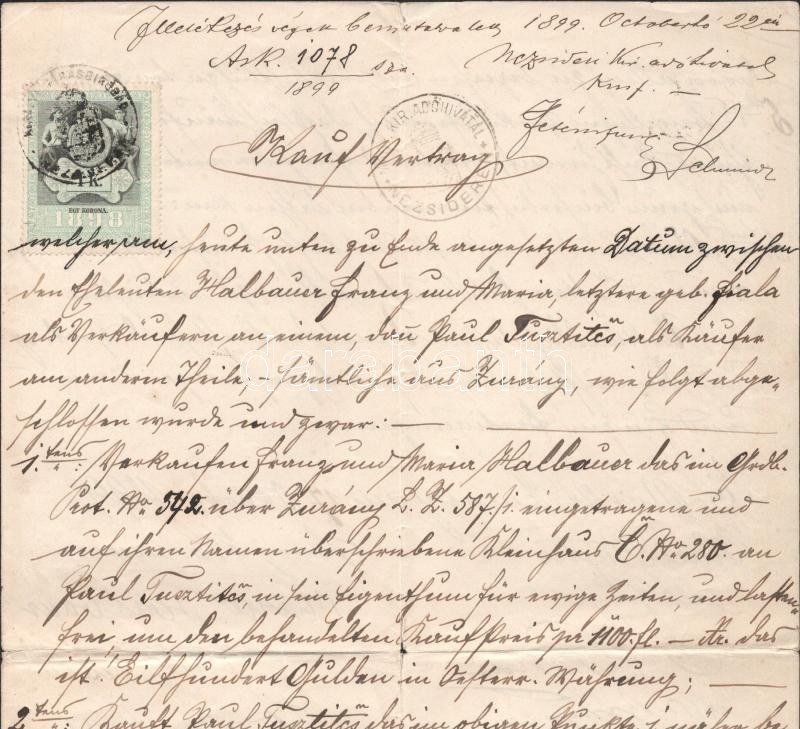 Illetékezés végett bemutatva lett 1899. October hó 22 én
Ark. 1078 sz.
1899
Nezsideri Kir. adóhivatal
Schmidt
KIR. ADÓHIVATAL
NEZSIDER
1 K.
EGY KORONA.
1898
Kauf Vertrag
welcher am, heute unten zu Ende angesetzten Datum zwischen
den Eheleuten Halbauer Franz und Maria, letztere geb. Fiala
als Verkäufern an einem, dan Paul Tusztitš, als Käufer
am anderm Theile, – sämtliche aus Zurány, wie folgt abge-
schlossen wurde und zwar: –
1. tens: Verkaufen Franz und Maria Halbauer das im Grdb.
Prot. No 542. über Zurány L. Z. 587./1. eingetragene und
auf ihren Namen überschriebene Kleinhaus C. No 280. an
Paul Tusztitš, in sein Eigenthum für ewige Zeiten, und lasten-
frei, um den behandelten Kaufpreis pr 1100. fl. – Kr. das
ist: Eilfhundert Gulden in Oesterr. Währung; –
2 tens: Kauft Paul Tusztitš das im obigen Punkte 1 näher be
darabanth